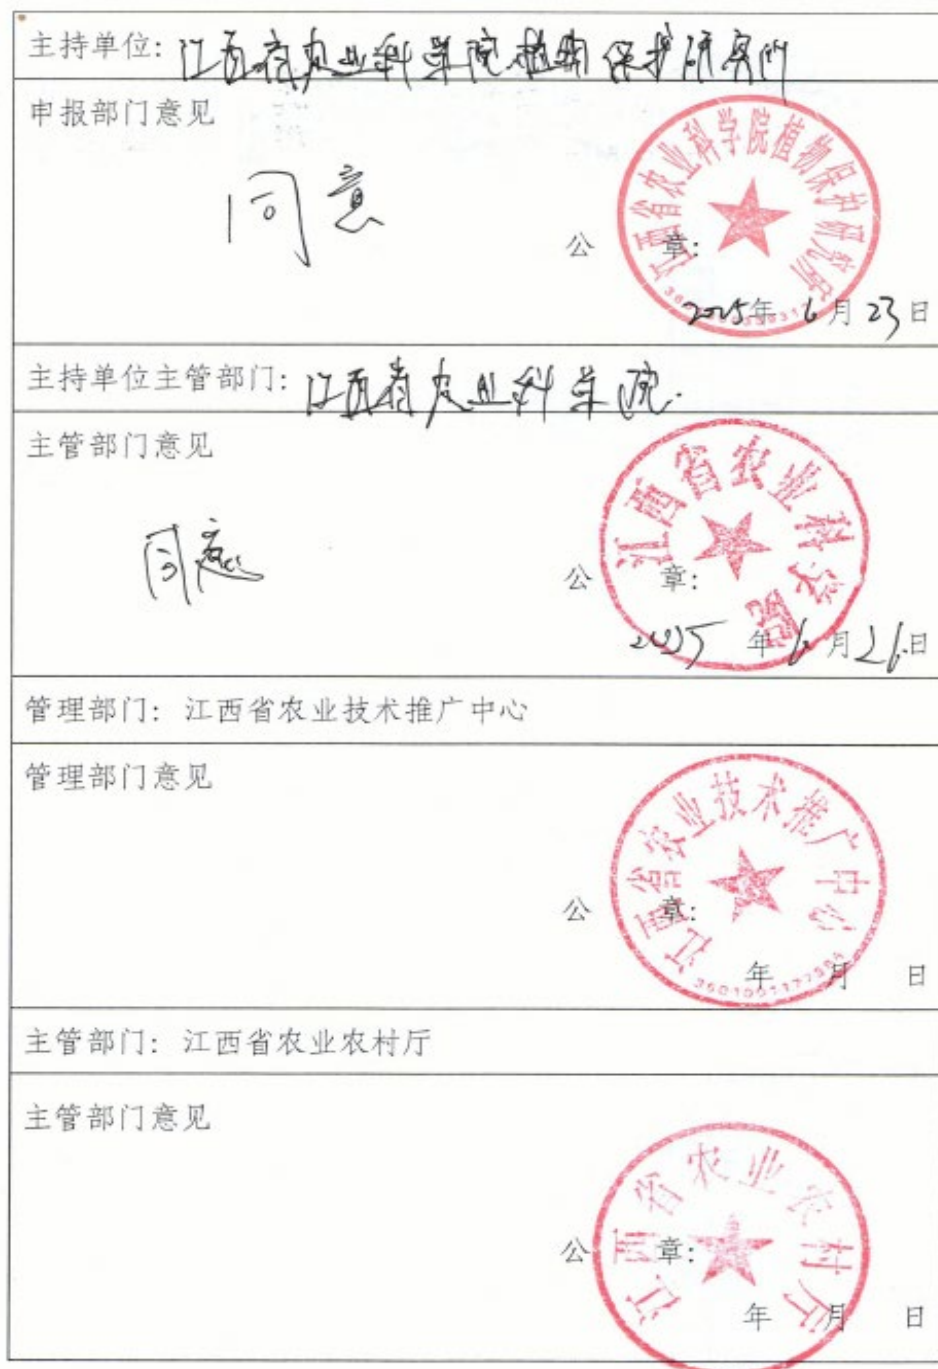 主持单位: 江西省农业科学院植物保护研究所
申报部门意见
同意
江西省农业科学院植物保护研究所
公 章:
2025年 6月 23日
主持单位主管部门: 江西省农业科学院.
主管部门意见
同意
江西省农业科学院
公 章:
2025年 6月 26日
管理部门: 江西省农业技术推广中心
管理部门意见
江西省农业技术推广中心
公 章:
年 月 日
主管部门: 江西省农业农村厅
主管部门意见
江西省农业农村厅
公 章:
年 月 日